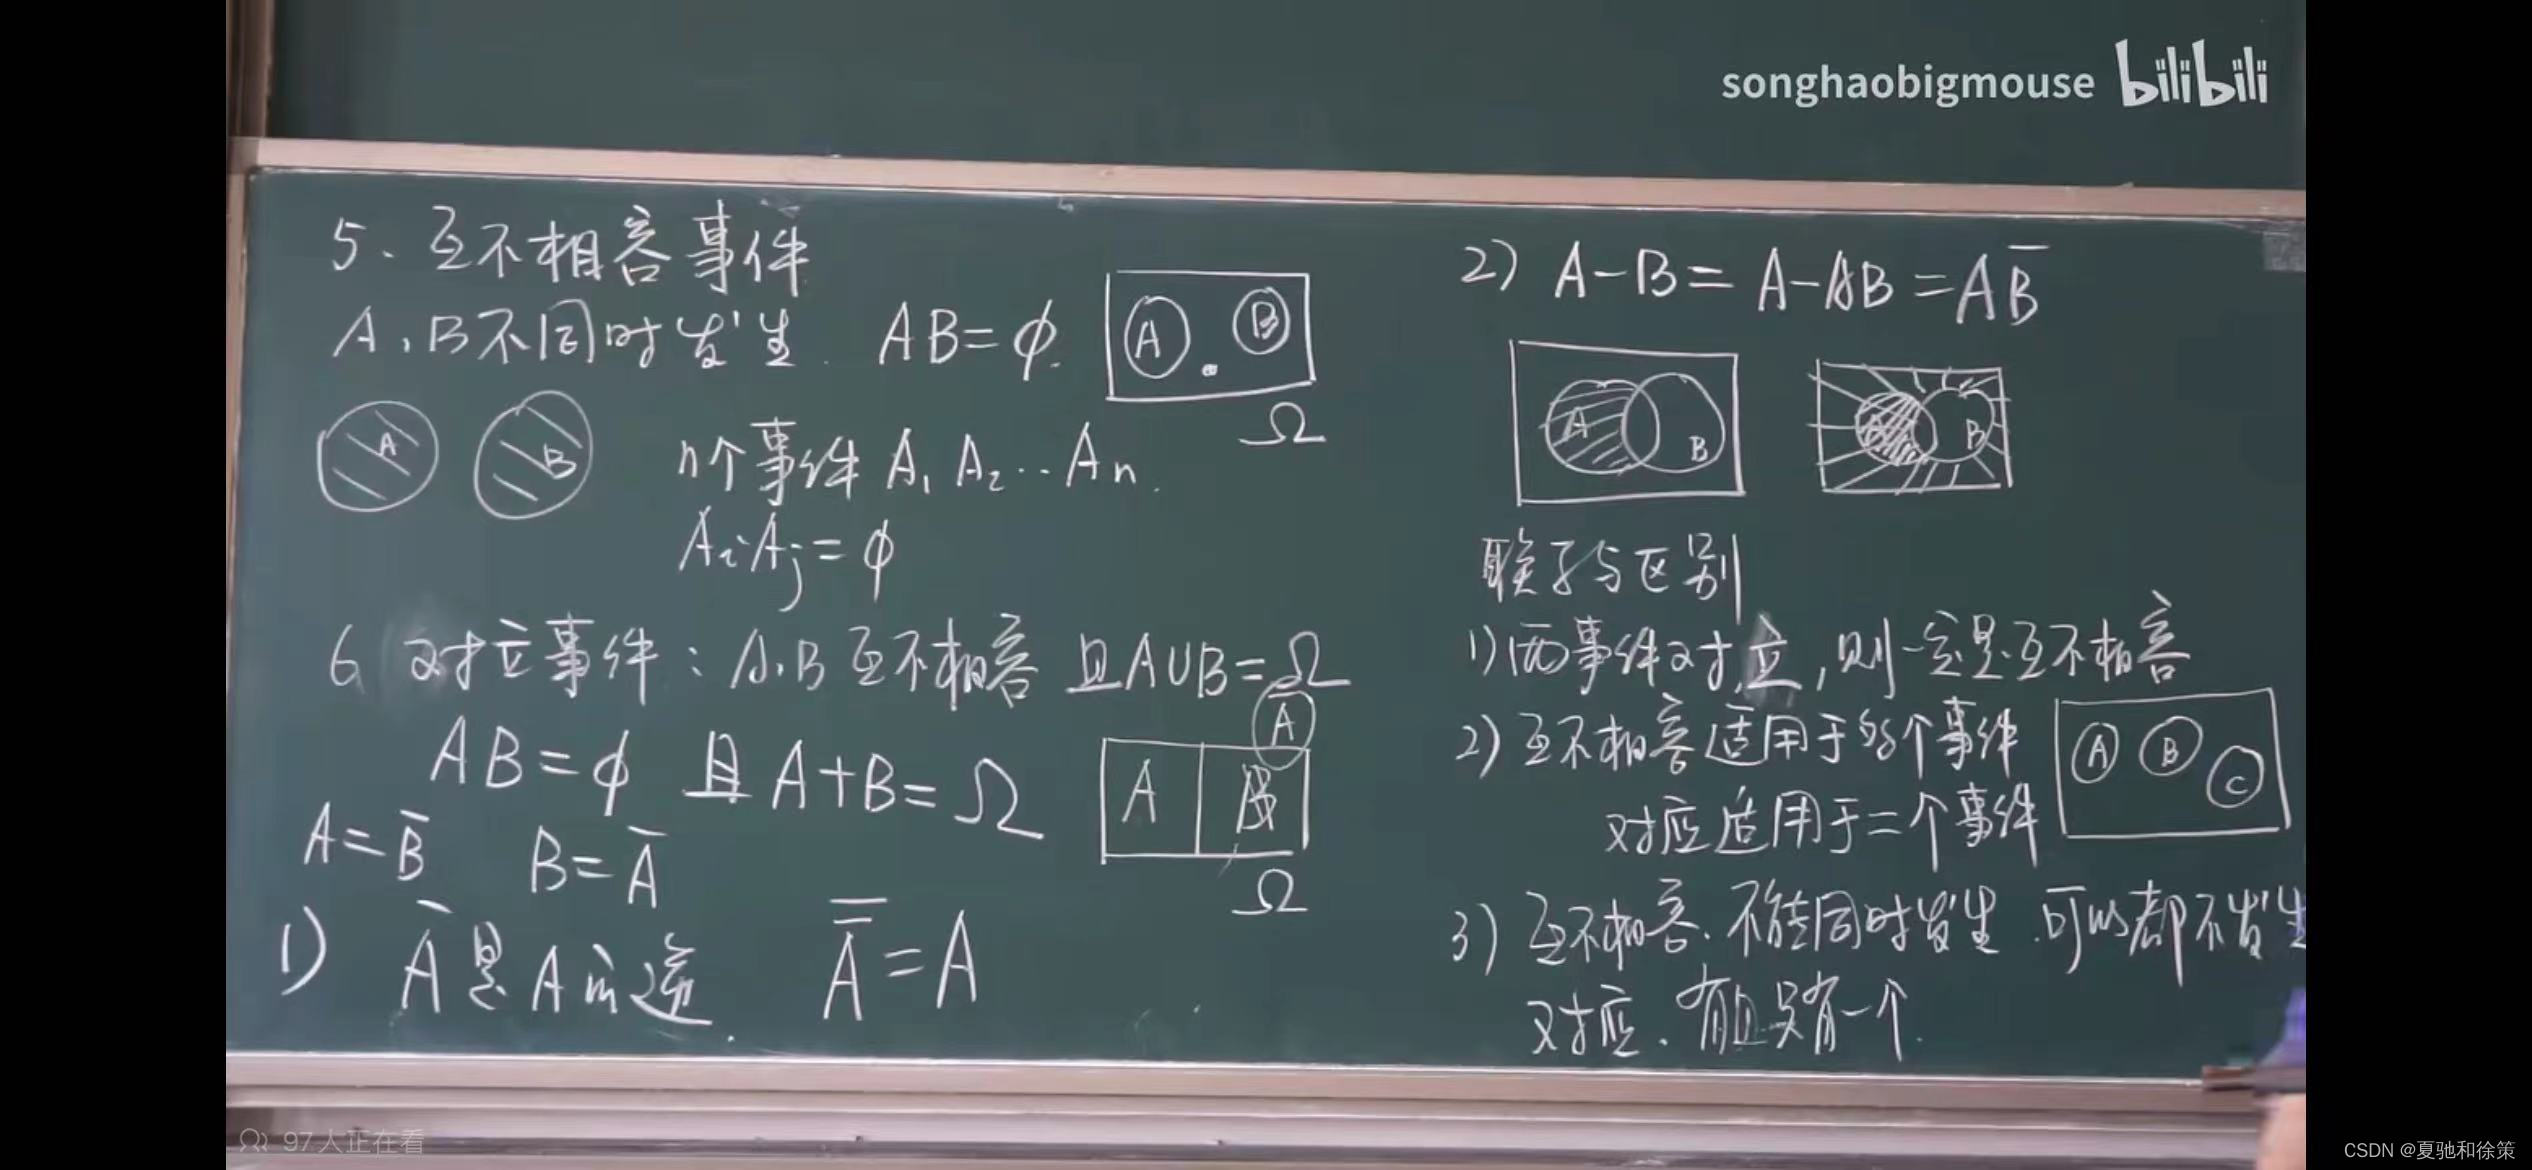 songhaobigmouse bilibili
5、互不相容事件
A、B不同时发生. AB=ϕ.
A B
Ω
A B
n个事件 A₁ A₂ … Aₙ.
AᵢAⱼ=ϕ
6 对立事件：A、B互不相容 且A∪B=Ω
AB=ϕ 且 A+B=Ω
A̅
A B
Ω
A=B̅ B=A̅
1) A̅是A的逆. A̿=A
2) A-B=A-AB=AB̅
A B
A B
联系与区别
1)两事件对立,则一定是互不相容
2) 互不相容适用于多个事件
A B C
对应适用于二个事件
3) 互不相容.不能同时发生.可以都不发生
对应.有且只有一个.
97人正在看
CSDN @夏驰和徐策